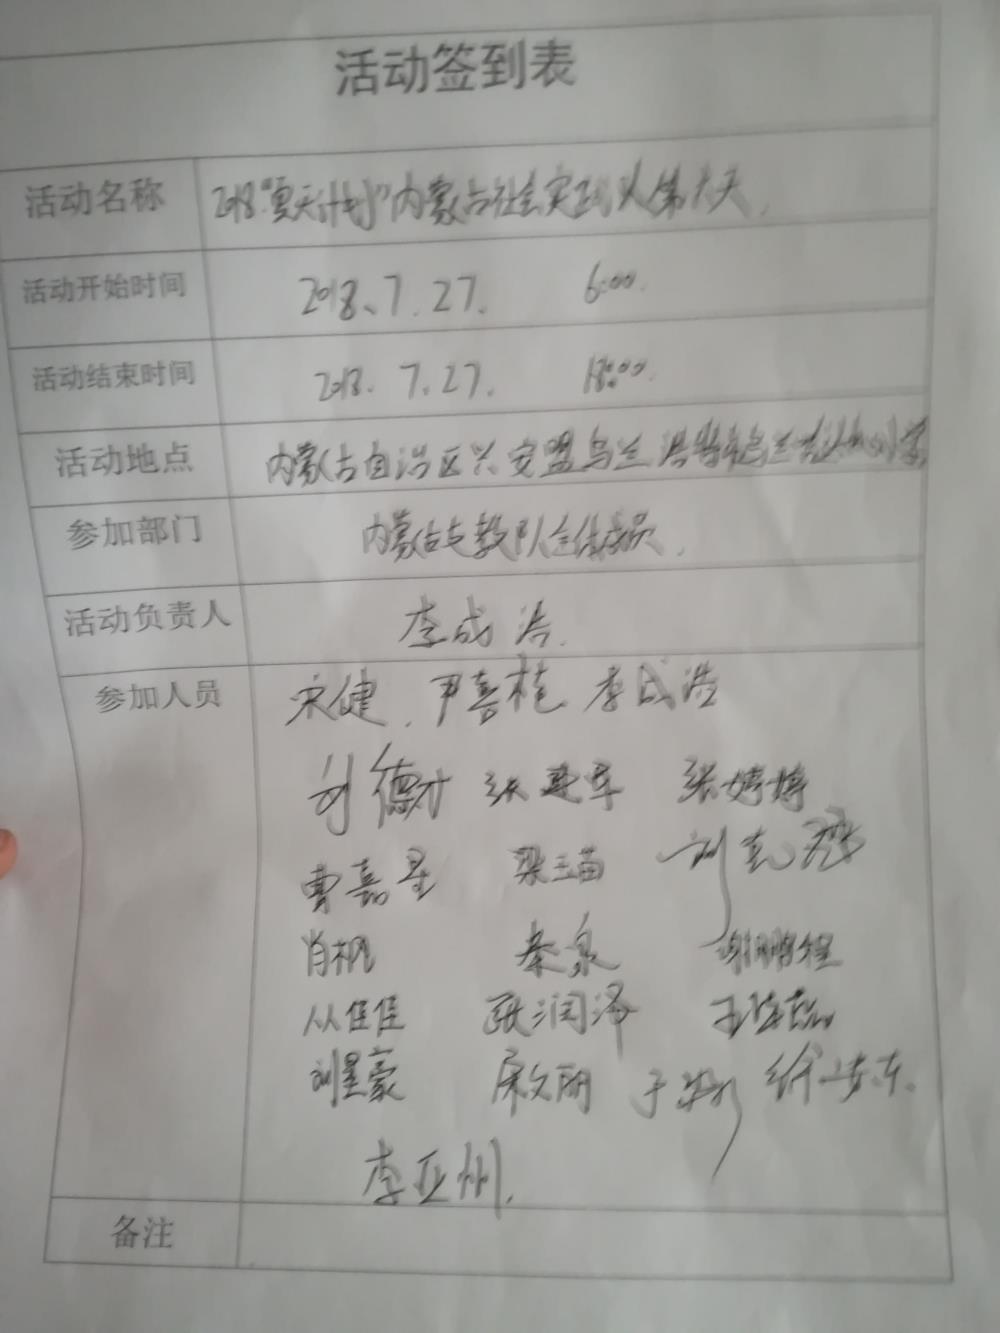 活动签到表
活动名称 2018“夏天计划”内蒙古社会实践队第六天.
活动开始时间 2018、7.27. 6:00.
活动结束时间 2018.7.27. 18:00.
活动地点 内蒙古自治区兴安盟乌兰浩特市乌兰 小学
参加部门 内蒙古支教队全体成员.
活动负责人 李成浩.
参加人员 宋健. 尹喜桂 李成浩
刘德才 张建军 张婷婷
曹嘉星 梁三苗 刘克
肖枫 秦泉 谢鹏程
从佳佳 张润泽 王
刘星豪 宋文丽 于 徐步东.
李亚州.
备注